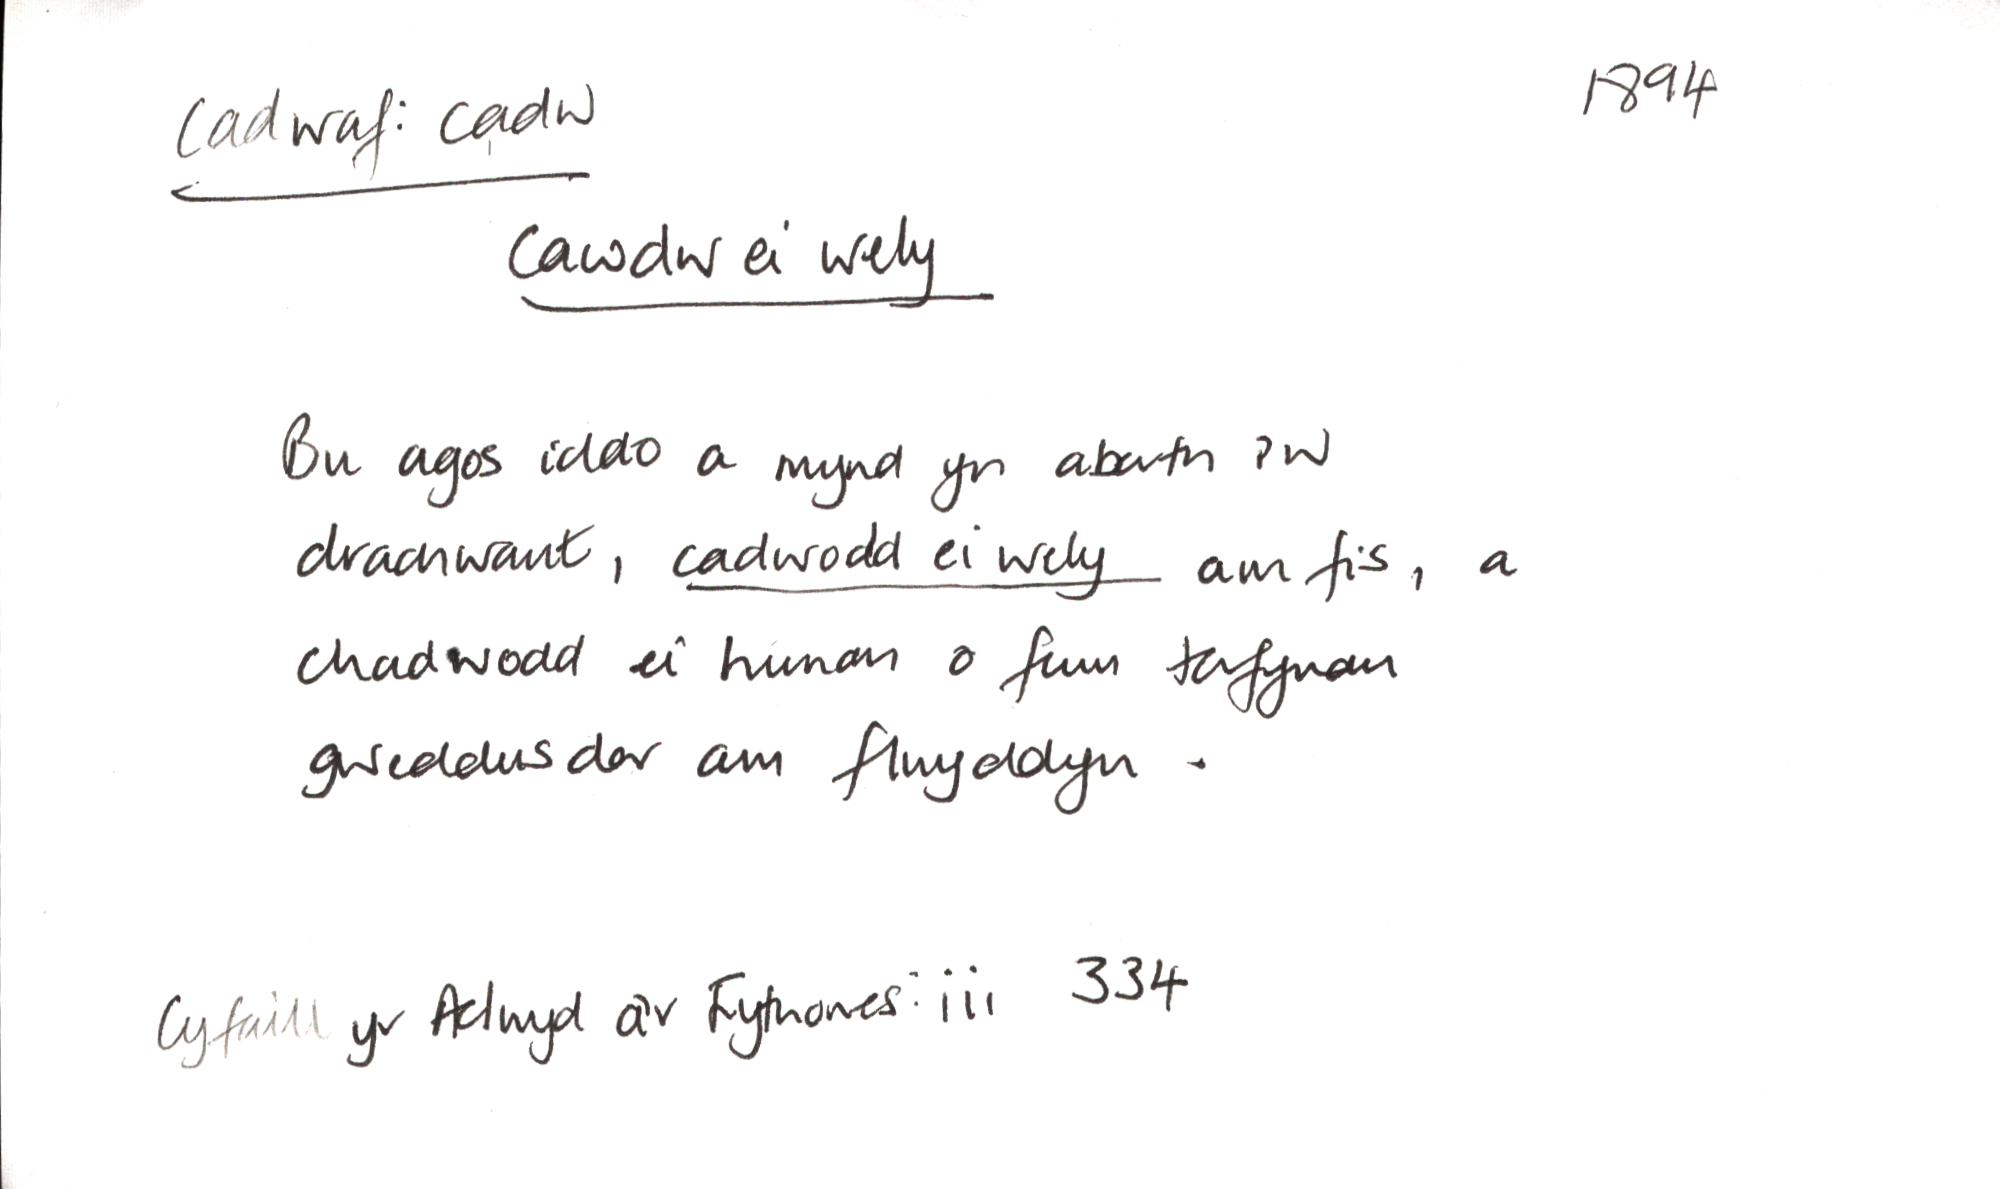 Cadwaf: cadw 1894
Cawdw ei wely
Bu agos iddo a mynd yn aberth i'w
drachwant, cadwodd ei wely am fis, a
chadwodd ei hunan o fewn terfynau
gweddusdar am flwyddyn.
Cyfaill yr Aelwyd a'r Frythones: iii 334